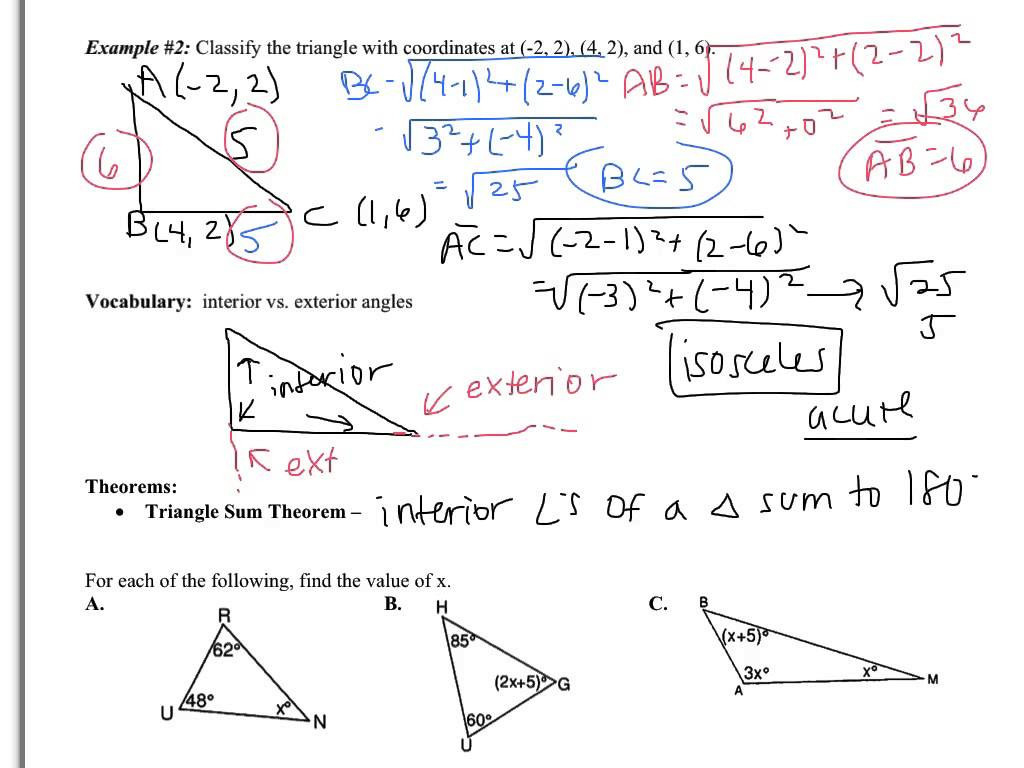 Example #2: Classify the triangle with coordinates at (-2, 2), (4, 2), and (1, 6).
A(-2,2)
BC = √(4-1)²+(2-6)²
AB = √(4--2)²+(2-2)²
= √3²+(-4)²
= √6²+0² = √36
6
5
= √25
BC=5
AB=6
B(4,2)
5
C (1,6)
AC = √(-2-1)²+(2-6)²
= √(-3)²+(-4)² → √25
5
Vocabulary: interior vs. exterior angles
isosceles
interior
exterior
acute
ext
Theorems:
• Triangle Sum Theorem – interior ∠'s of a △ sum to 180°
For each of the following, find the value of x.
A.
B.
C.
R
62°
U
48°
x°
N
H
85°
(2x+5)°
G
60°
U
B
(x+5)°
3x°
x°
A
M